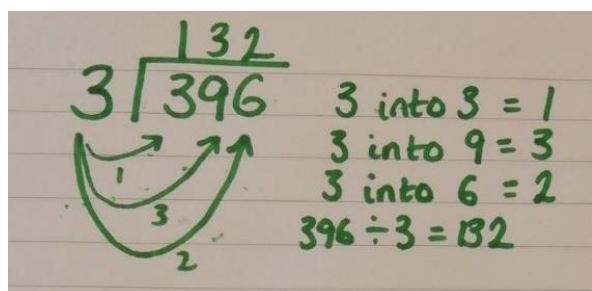 132
3 396
3 into 3 = 1
1
3 into 9 = 3
3
3 into 6 = 2
2
396 ÷ 3 = 132